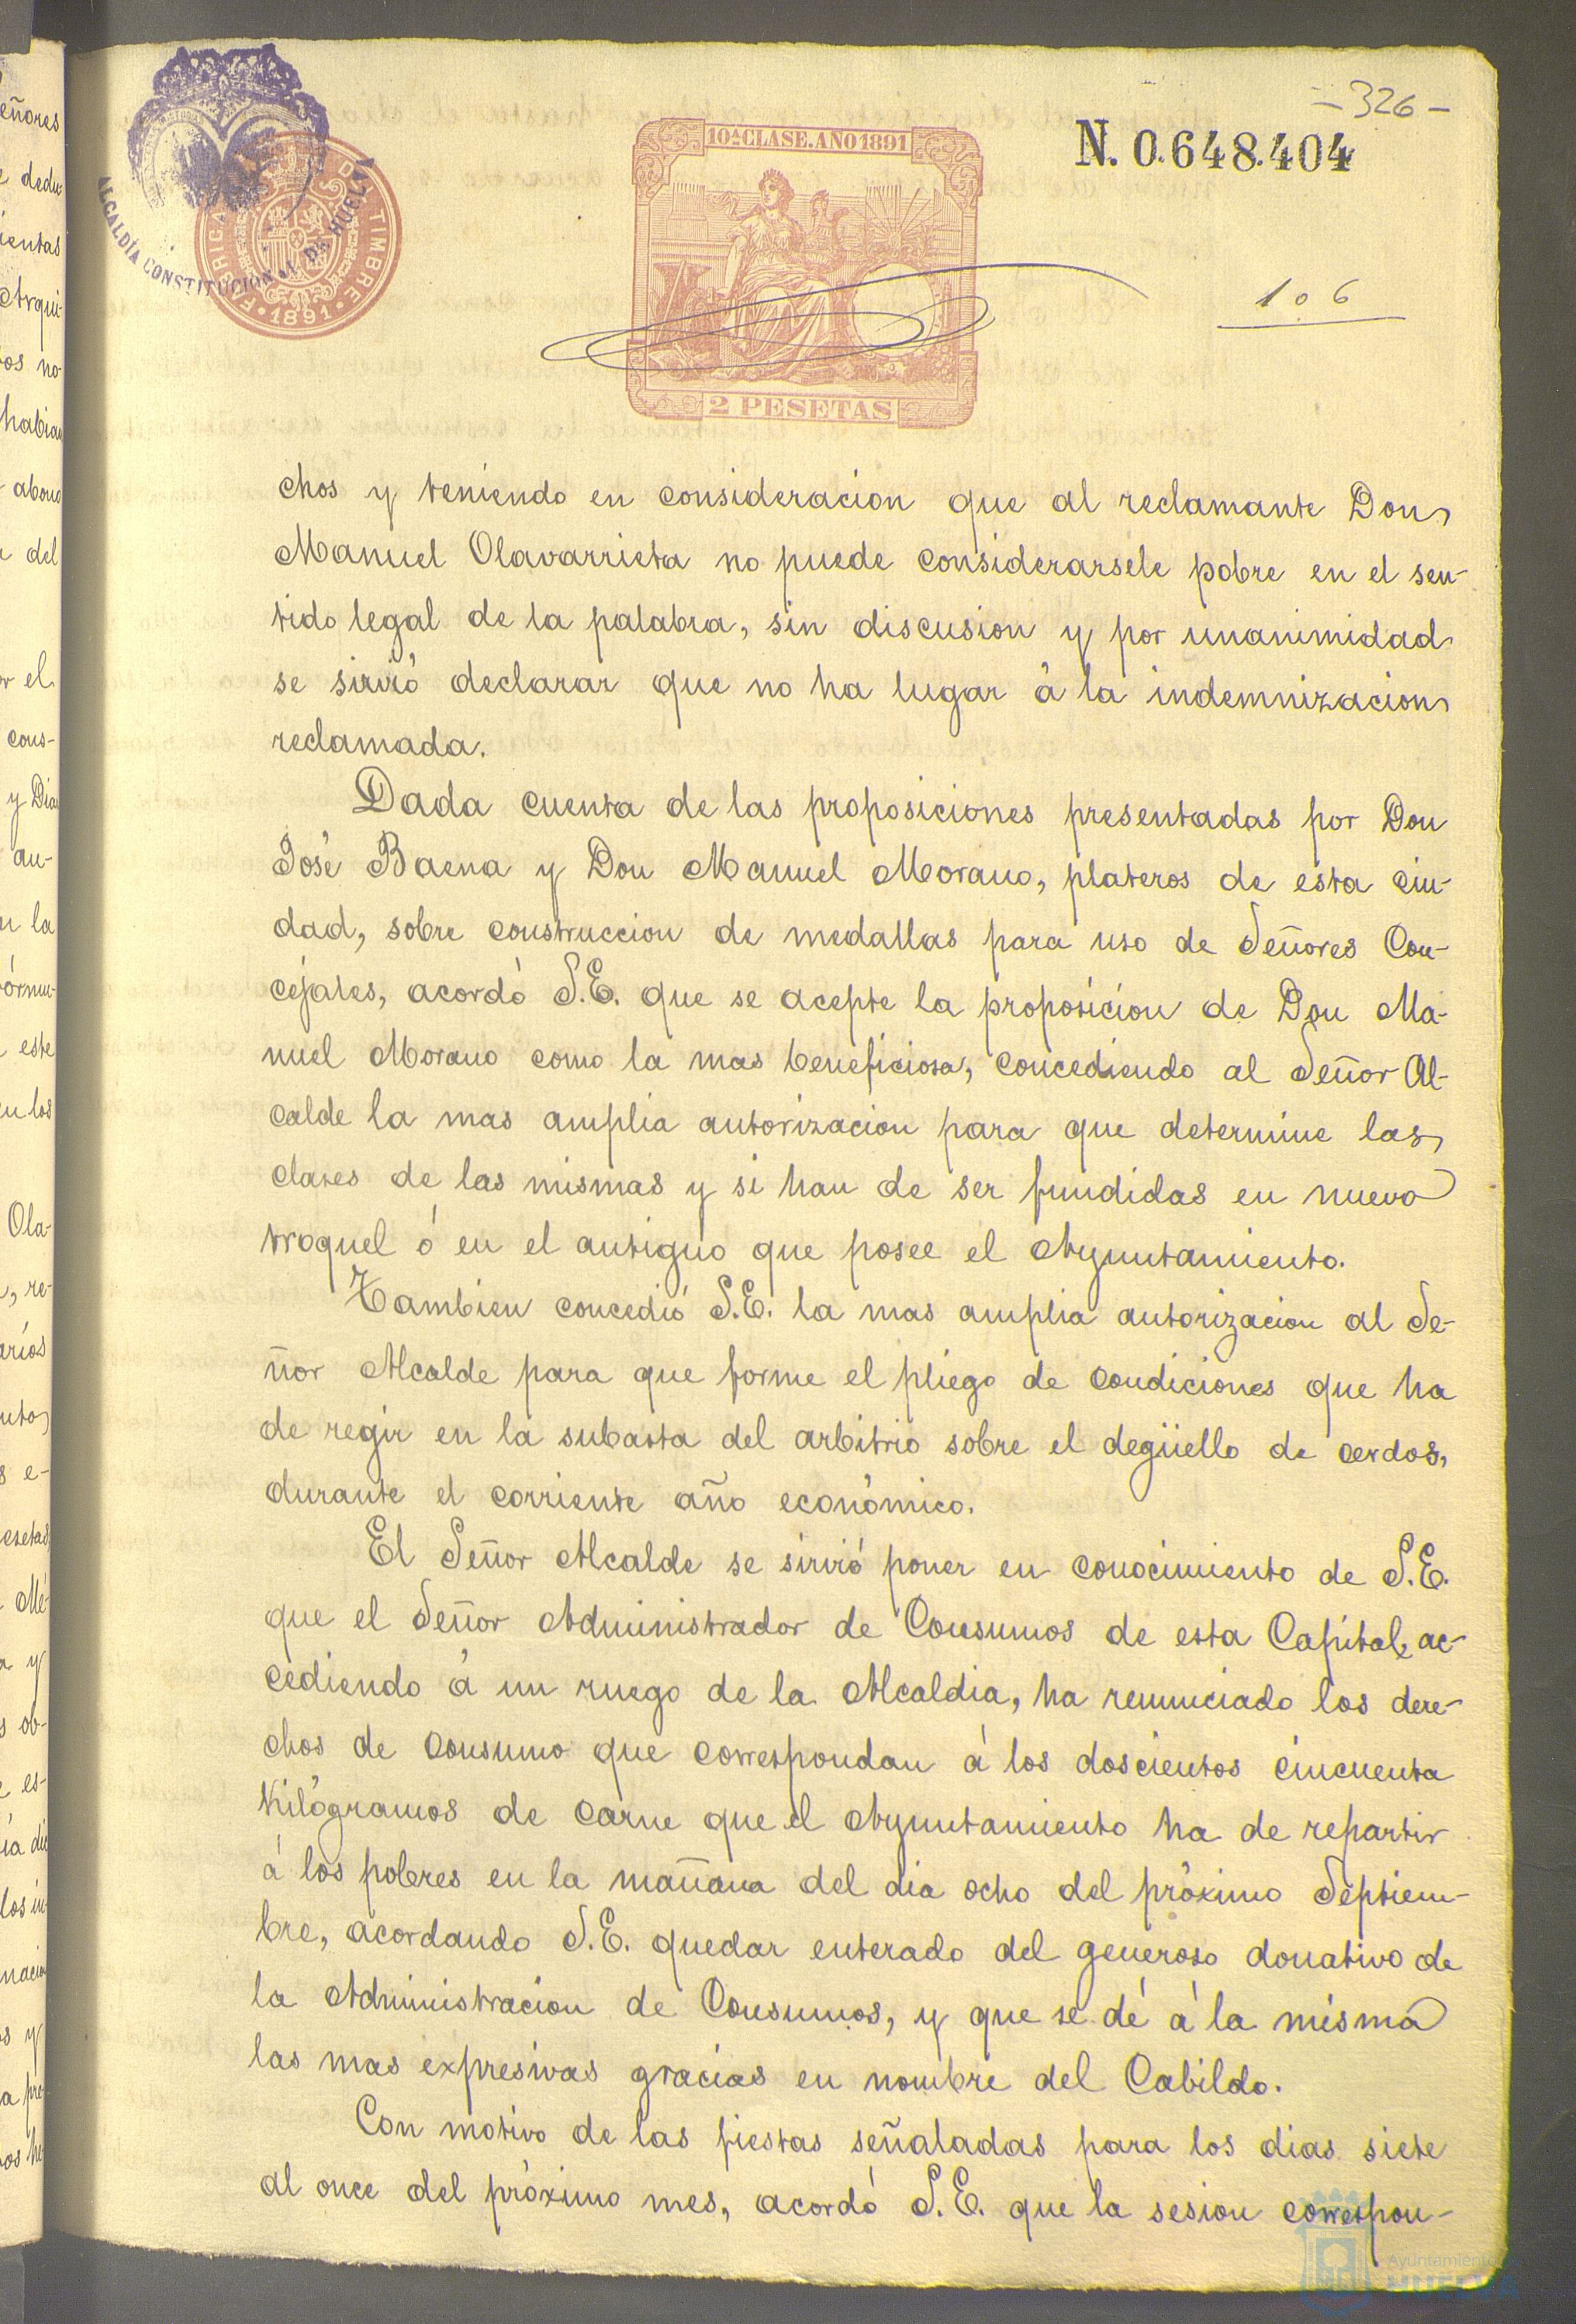 - 326 -
N. 0.648.404
10ª CLASE. AÑO 1891
ALCALDÍA CONSTITUCIONAL DE HUELVA
FABRICA DEL TIMBRE
1891
106
2 PESETAS
chos y teniendo en consideracion que al reclamante Don
Manuel Olavarrieta no puede considerarsele pobre en el sen-
tido legal de la palabra, sin discusion y por unanimidad
se sirvió declarar que no ha lugar á la indemnizacion
reclamada.
Dada cuenta de las proposiciones presentadas por Don
José Baena y Don Manuel Morano, plateros de esta ciu-
dad, sobre construccion de medallas para uso de Señores Con-
cejales, acordó S.E. que se acepte la proposicion de Don Ma-
nuel Morano como la mas beneficiosa, concediendo al Señor Al-
calde la mas amplia autorizacion para que determine las
clases de las mismas y si han de ser fundidas en nuevo
troquel ó en el antiguo que posee el Ayuntamiento.
Tambien concedió S.E. la mas amplia autorizacion al Se-
ñor Alcalde para que forme el pliego de condiciones que ha
de regir en la subasta del arbitrio sobre el degüello de cerdos,
durante el corriente año económico.
El Señor Alcalde se sirvió poner en conocimiento de S.E.
que el Señor Administrador de Consumos de esta Capital, ac-
cediendo á un ruego de la Alcaldia, ha renunciado los dere-
chos de consumo que correspondan á los doscientos cincuenta
Kilógramos de carne que el Ayuntamiento ha de repartir
á los pobres en la mañana del dia ocho del próximo Septiem-
bre, acordando S.E. quedar enterado del generoso donativo de
la Administracion de Consumos, y que se dé á la misma
las mas expresivas gracias en nombre del Cabildo.
Con motivo de las fiestas señaladas para los dias siete
al once del próximo mes, acordó S.E. que la sesion correspon-
Ayuntamiento
HUELVA
eñores
dedu-
ientas
Arqui-
os no-
habian
abono
del
r el
cons-
y Dia
au-
n la
órmu-
este
en los
Ola-
, re-
arios
s e-
esetas
Mé-
a y
s ob-
es-
los in-
s y